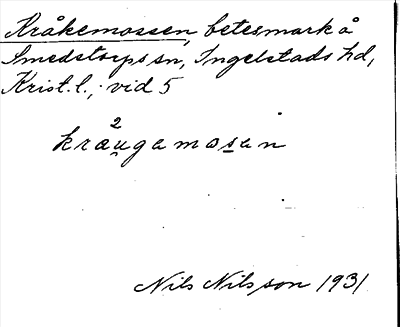 Kråkemossen, betesmark å
Smedstorps sn, Ingelstads hd,
Krist. l., vid 5
2
kraugamosan
Nils Nilsson 1931